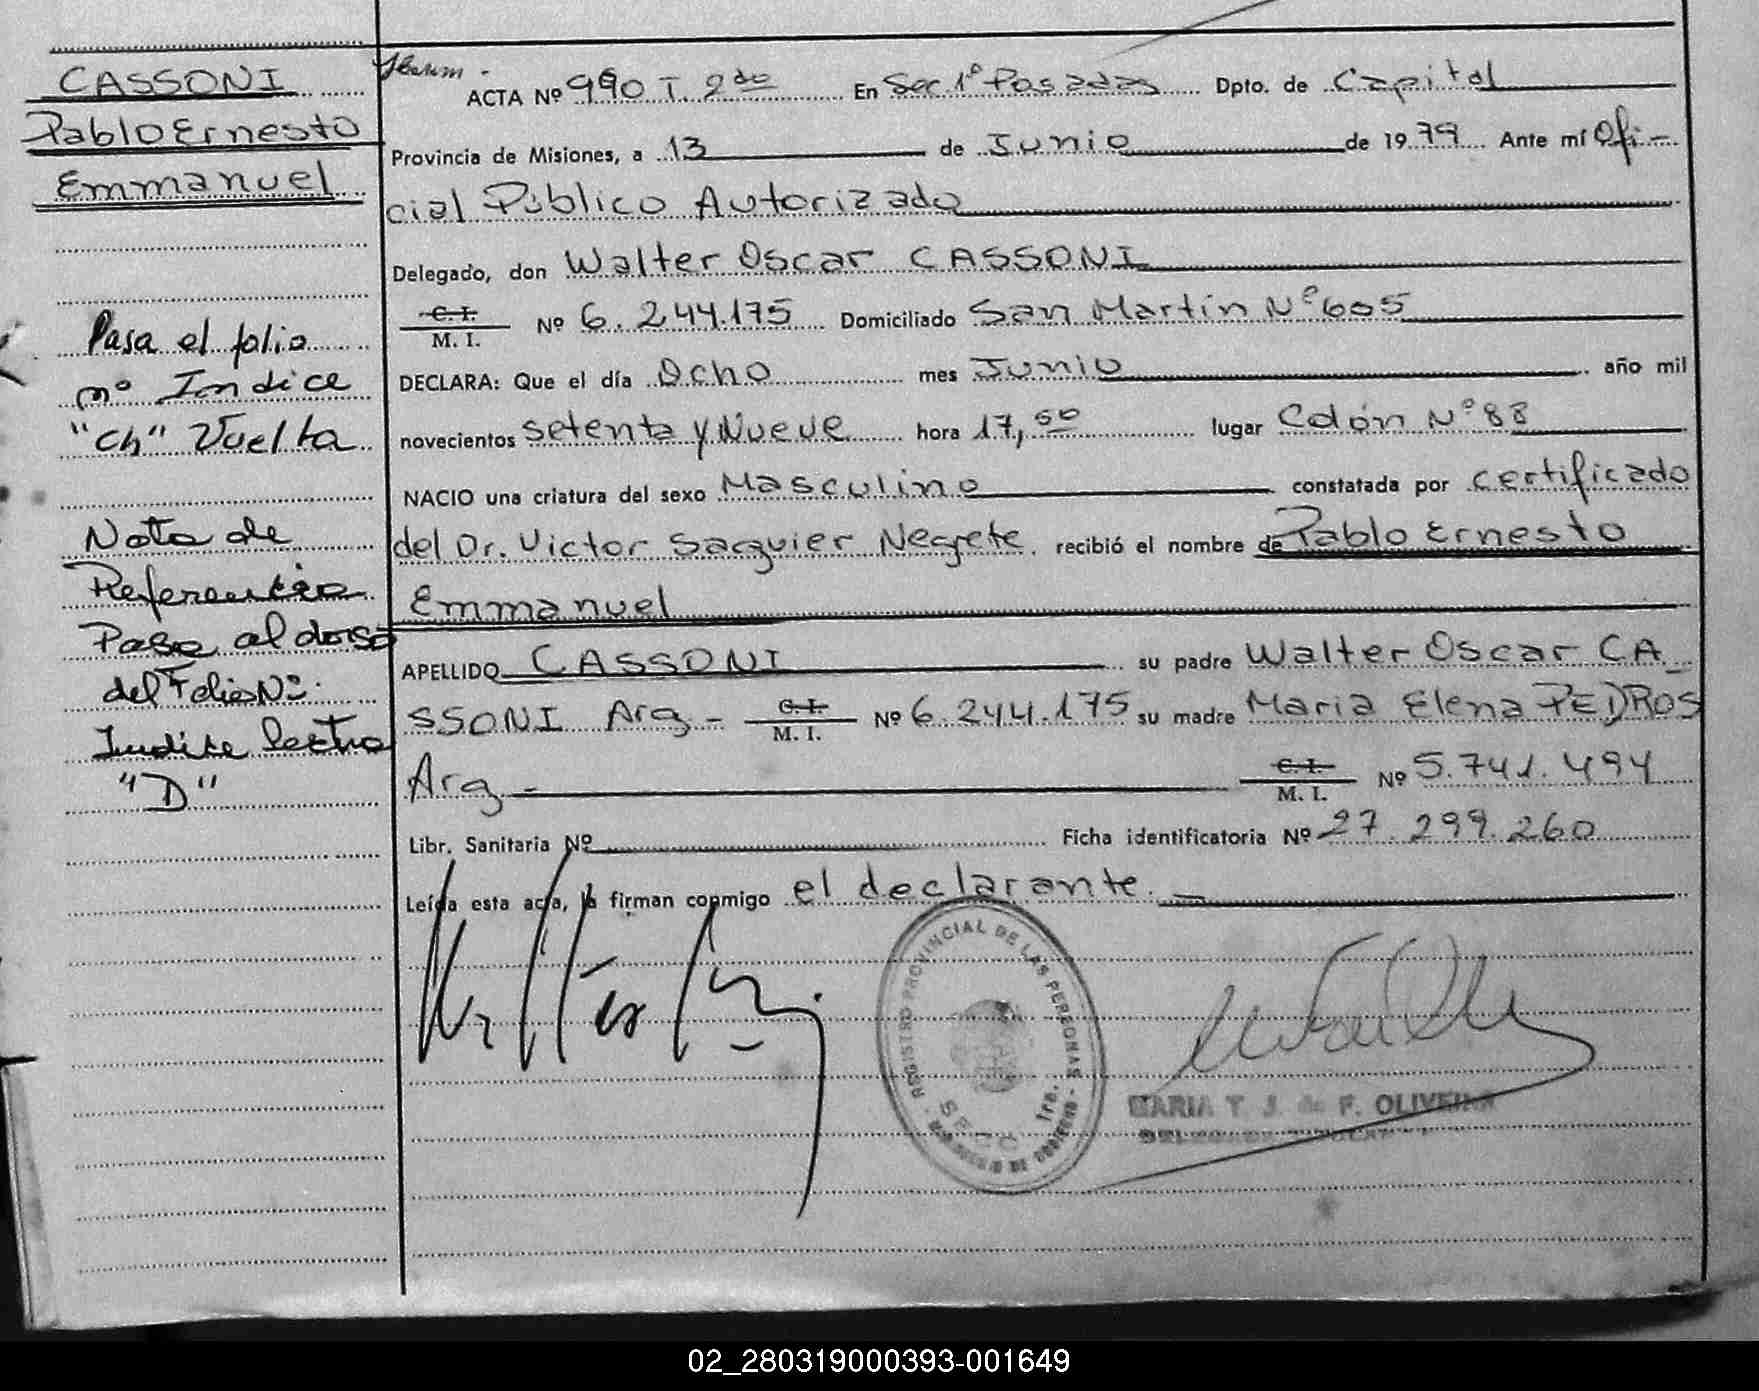 CASSONI
Pablo Ernesto
Emmanuel
Pasa el folio
nº Indice
"Ch" Vuelta
Nota de
Referencia
Pasa al dorso
del Folio Nº:
Indice letra
"D"
ACTA Nº 990 T. 2do En Sec 1º Posadas Dpto. de Capital
Provincia de Misiones, a 13 de Junio de 1979 Ante mí Ofi-
cial Público Autorizado
Delegado, don Walter Oscar CASSONI
C. I.
M. I. Nº 6.244.175 Domiciliado San Martín Nº 605
DECLARA: Que el día Ocho mes Junio año mil
novecientos setenta y Nueve hora 17,50 lugar Colón Nº 88
NACIO una criatura del sexo Masculino constatada por certificado
del Dr. Victor Saguier Negrete recibió el nombre de Pablo Ernesto
Emmanuel
APELLIDO CASSONI su padre Walter Oscar CA
SSONI Arg - C. I. M. I. Nº 6.244.175 su madre Maria Elena PEDROS
Arg - C. I. M. I. Nº 5.741.494
Libr. Sanitaria Nº Ficha identificatoria Nº 27.299.260
Leída esta acta, la firman conmigo el declarante.
REGISTRO PROVINCIAL DE LAS PERSONAS
SECC. 1ra.
MARIA T. J. de F. OLIVEIRA
02_280319000393-001649